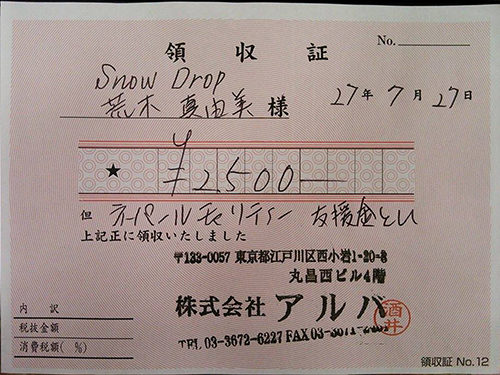 領収証
No.
Snow Drop
荒木 真由美 様
27年 7月 27日
★ ¥2500—
但 ネパールチャリティー 支援金とし
上記正に領収いたしました
〒133-0057 東京都江戸川区西小岩1-20-8
丸昌西ビル4階
株式会社 アルバ
酒井
TEL 03-3672-6227 FAX 03-3671-
内訳
税抜金額
消費税額( %)
領収証 No.12